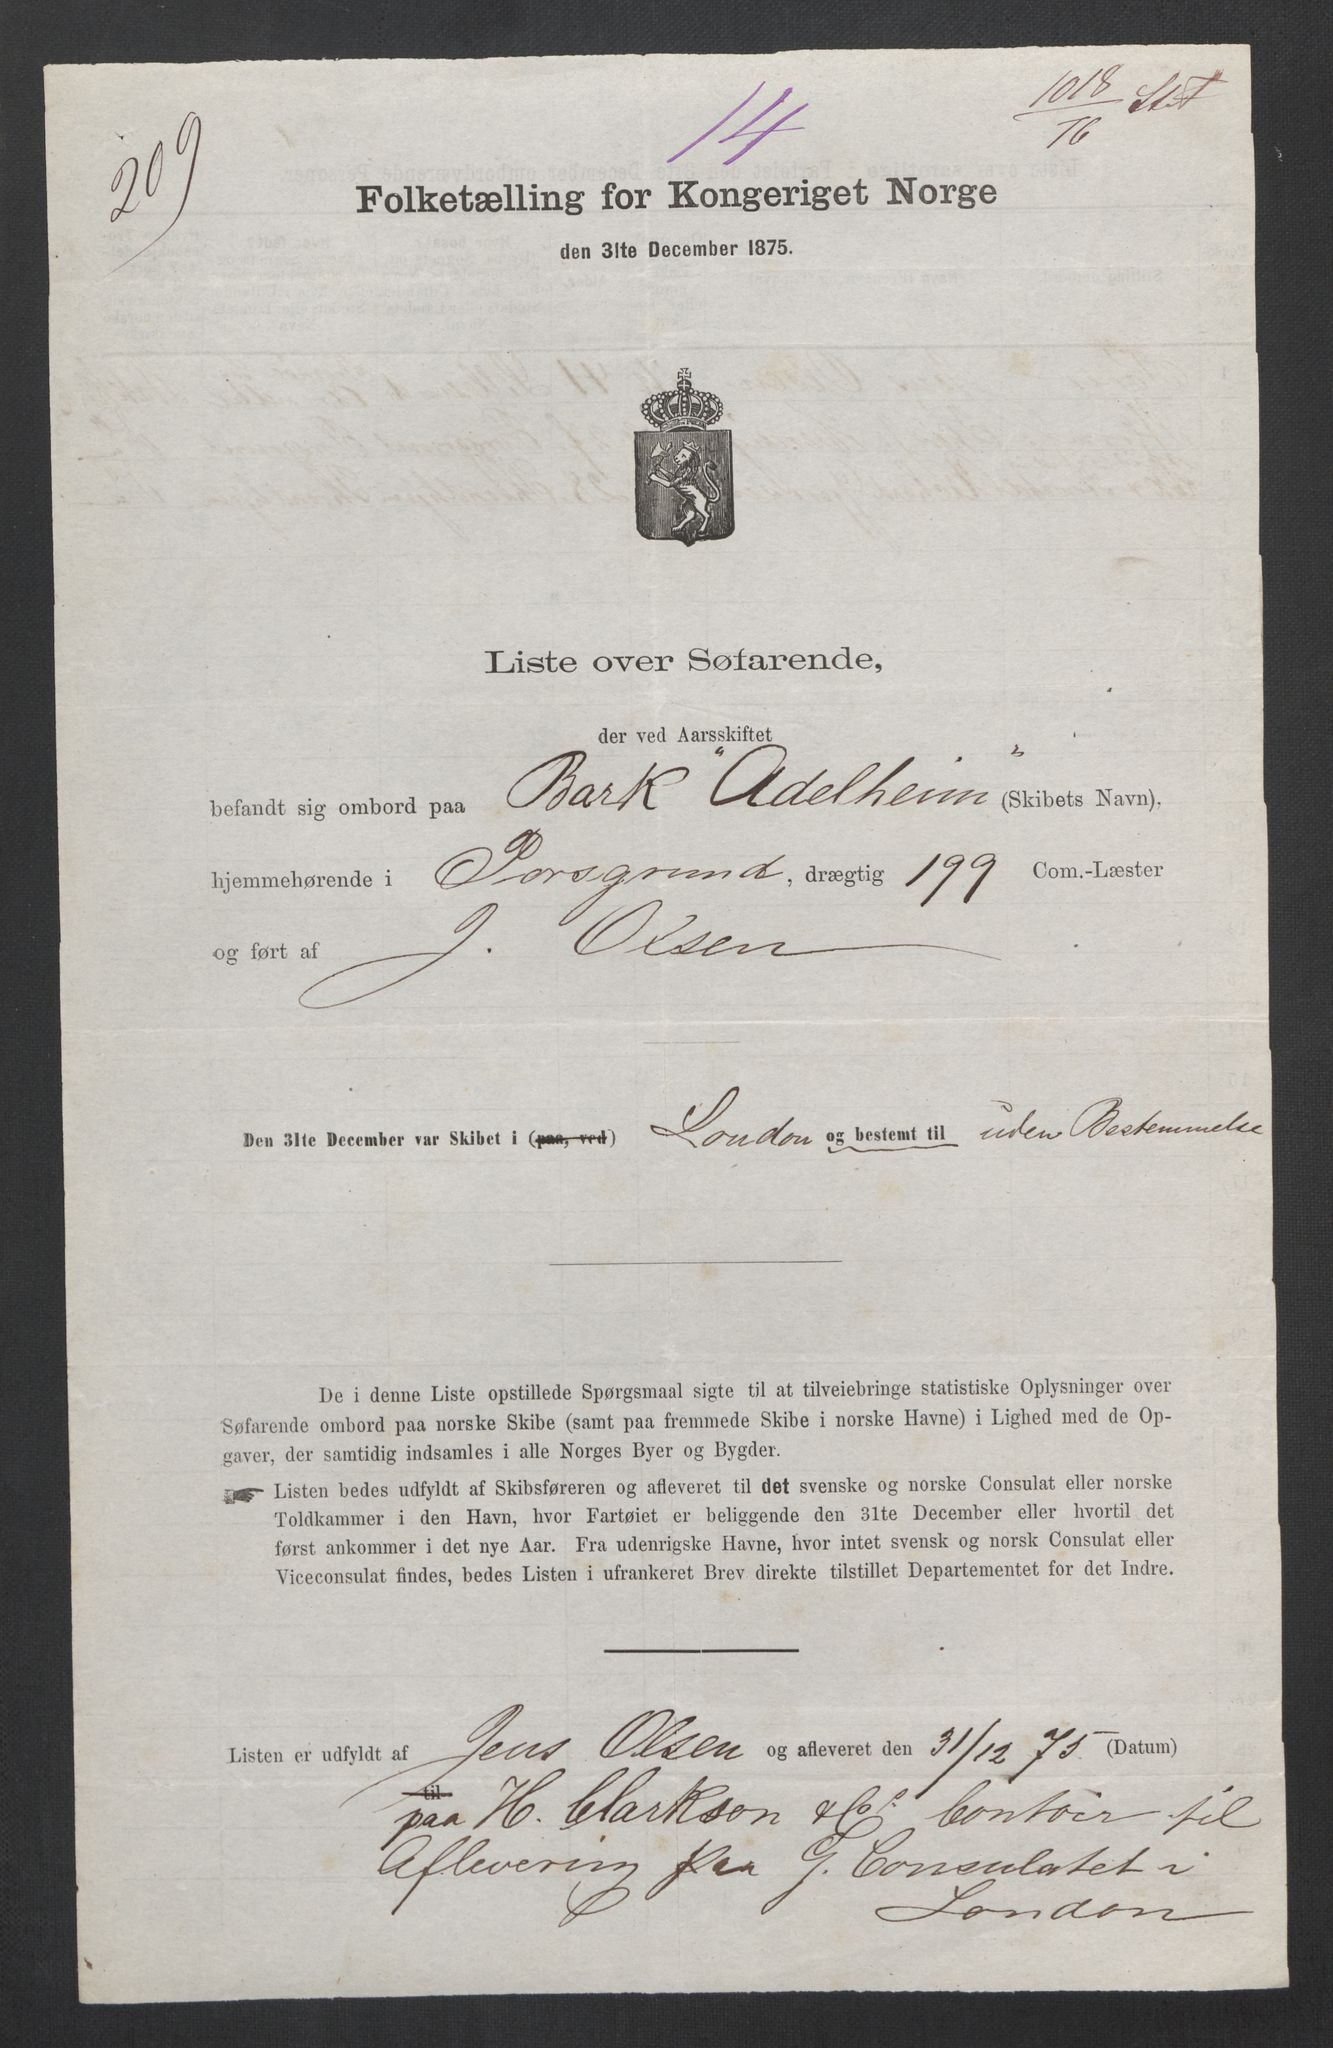 209
14
1018
76
Folketælling for Kongeriget Norge
den 31te December 1875.
Liste over Søfarende,
der ved Aarsskiftet
befandt sig ombord paa Bark "Adelheim" (Skibets Navn),
hjemmehørende i Porsgrund, drægtig 199 Com.-Læster
og ført af J. Olsen
Den 31te December var Skibet i (paa, ved) London og bestemt til uden Bestemmelse
De i denne Liste opstillede Spørgsmaal sigte til at tilveiebringe statistiske Oplysninger over
Søfarende ombord paa norske Skibe (samt paa fremmede Skibe i norske Havne) i Lighed med de Op-
gaver, der samtidig indsamles i alle Norges Byer og Bygder.
Listen bedes udfyldt af Skibsføreren og afleveret til det svenske og norske Consulat eller norske
Toldkammer i den Havn, hvor Fartøiet er beliggende den 31te December eller hvortil det
først ankommer i det nye Aar. Fra udenrigske Havne, hvor intet svensk og norsk Consulat eller
Viceconsulat findes, bedes Listen i ufrankeret Brev direkte tilstillet Departementet for det Indre.
Listen er udfyldt af Jens Olsen og afleveret den 31/12 75 (Datum)
til
paa H. Clarkson & Co. Contoir til
Aflevering paa G. Consulatet i
London